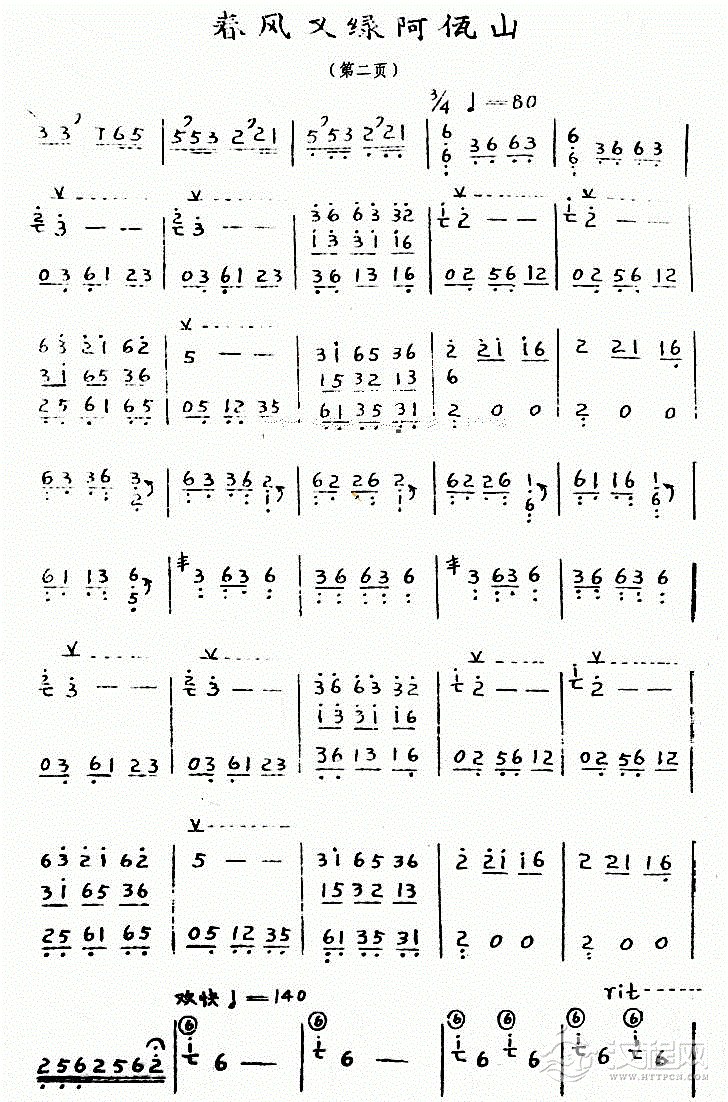 春风又绿阿佤山
（第二页）
3/4 ♩=80
33 765 | 5553 2221 | 5553 2221 | 6 6 3663 | 6 6 3663
3 — — | 3 — — | 36 63 32 | 2 — — | 2 — —
13 31 16
03 61 23 | 03 61 23 | 36 13 16 | 02 56 12 | 02 56 12
63 21 62 | 5 — — | 31 65 36 | 2 21 16 | 2 21 16
31 65 36 | 15 32 13 | 6
25 61 65 | 05 12 35 | 61 35 31 | 2 0 0 | 2 0 0
63 36 3 2 | 63 36 2 1 | 62 26 2 1 | 62 26 1 6 | 61 16 1 6
61 13 6 5 | 3 63 6 | 36 63 6 | 3 63 6 | 36 63 6
3 — — | 3 — — | 36 63 32 | 2 — — | 2 — —
13 31 16
03 61 23 | 03 61 23 | 36 13 16 | 02 56 12 | 02 56 12
63 21 62 | 5 — — | 31 65 36 | 2 21 16 | 2 21 16
31 65 36 | 15 32 13
25 61 65 | 05 12 35 | 61 35 31 | 2 0 0 | 2 0 0
欢快 ♩=140
rit
⑥ ⑥ ⑥ ⑥ ⑥ ⑥
2562562 | 6 — | 6 — | 6 6 | 6 6
汉程网
HTTPCN.COM